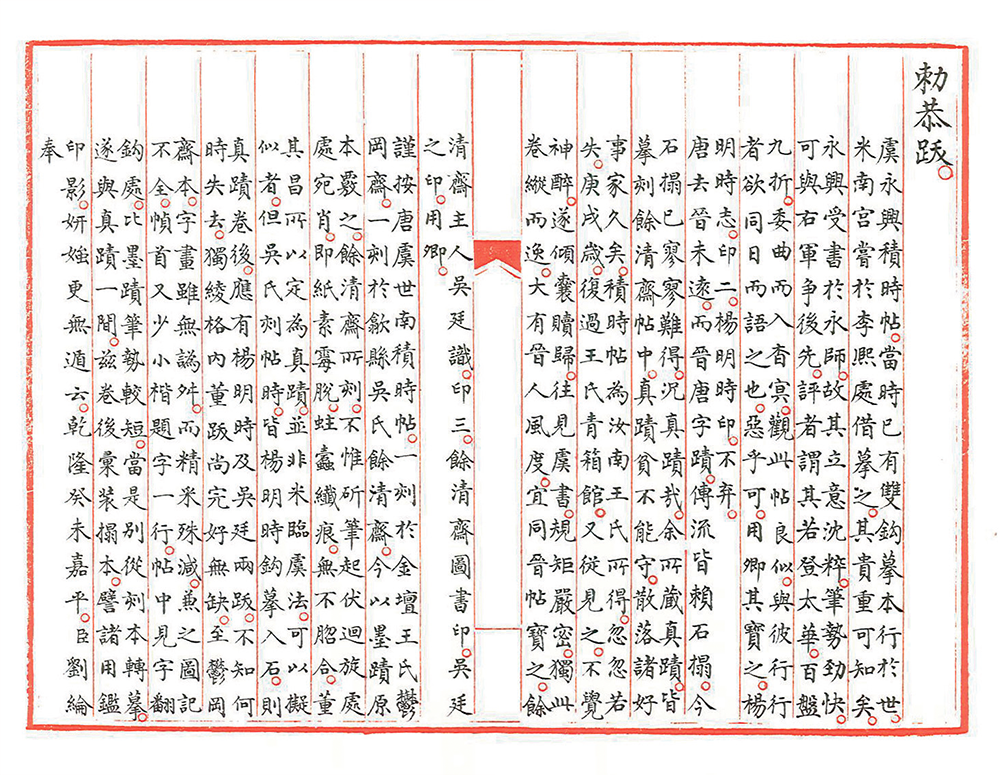 勅恭跋。
虞永興積時帖。當時已有雙鈎摹本行於世。
米南宮嘗於李熙處借摹之。其貴重可知矣。
永興受書於永師。故其立意沈粹。筆勢勁快。
可與右軍争後先。評者謂其若登太華。百盤
九折。委曲而入杳冥。觀此帖良似。與彼行行
者欲同日而語之也。惡乎可。用卿其寶之。楊
明時志。印二。楊明時印。不弃。
唐去晉未遠。而晉唐字蹟。傳流皆賴石搨。今
石搨已寥寥難得。况真蹟哉。余所藏真蹟。皆
摹刻餘清齋帖中。真蹟貧不能守。散落諸好
事家久矣。積時帖為汝南王氏所得。忽忽若
失。庚戌歲。復過王氏青箱館。又從見之。不覺
神醉。遂傾囊贖歸。往見虞書。規矩嚴密。獨此
卷縱而逸。大有晉人風度。宜同晉帖寶之。餘
清齋主人吳廷識。印三。餘清齋圖書印。吳廷
之印。用卿。
謹按唐虞世南積時帖。一刻於金壇王氏鬱
岡齋。一刻於歙縣吳氏餘清齋。今以墨蹟原
本覈之。餘清齋所刻。不惟斫筆起伏迴旋處
處宛肖。即紙素霉脫。蛀蠹纖痕。無不脗合。董
其昌所以定為真蹟。並非米臨虞法。可以擬
似者。但吳氏刻帖時。皆楊明時鈎摹入石。則
真蹟卷後。應有楊明時及吳廷兩跋。不知何
時失去。獨綾格內董跋尚完好無缺。至鬱岡
齋本。字畫雖無譌舛。而精采殊減。兼之圖記
不全。幀首又少小楷題字一行。帖中見字翻
鈎處。比墨蹟筆勢較短。當是別從刻本轉摹。
遂與真蹟一間。茲卷後彙装搨本。譬諸用鑑
印影。妍媸更無遁云。乾隆癸未嘉平。臣劉綸
奉